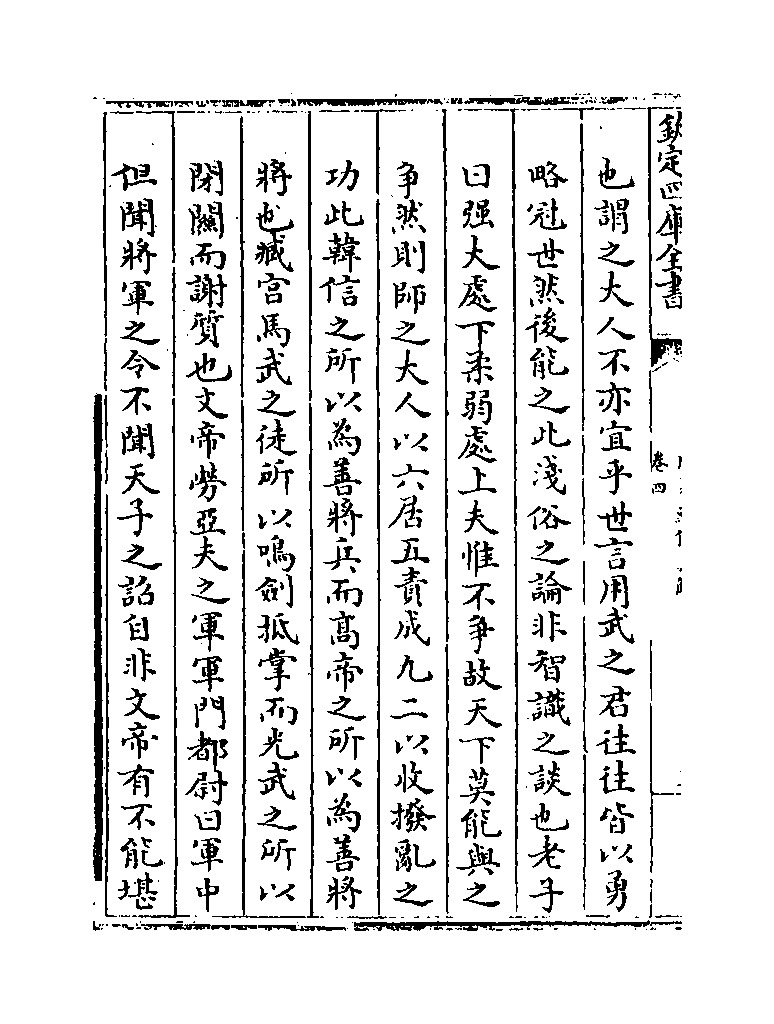 欽定四庫全書
卷四
也謂之大人不亦宜乎世言用武之君往往皆以勇
略冠世然後能之此淺俗之論非智識之談也老子
曰强大處下柔弱處上夫惟不爭故天下莫能與之
爭然則師之大人以六居五責成九二以收撥亂之
功此韓信之所以為善將兵而髙帝之所以為善將
將也臧宫馬武之徒所以鳴劍抵掌而光武之所以
閉關而謝質也文帝勞亞夫之軍軍門都尉曰軍中
但聞將軍之令不聞天子之詔自非文帝有不能堪